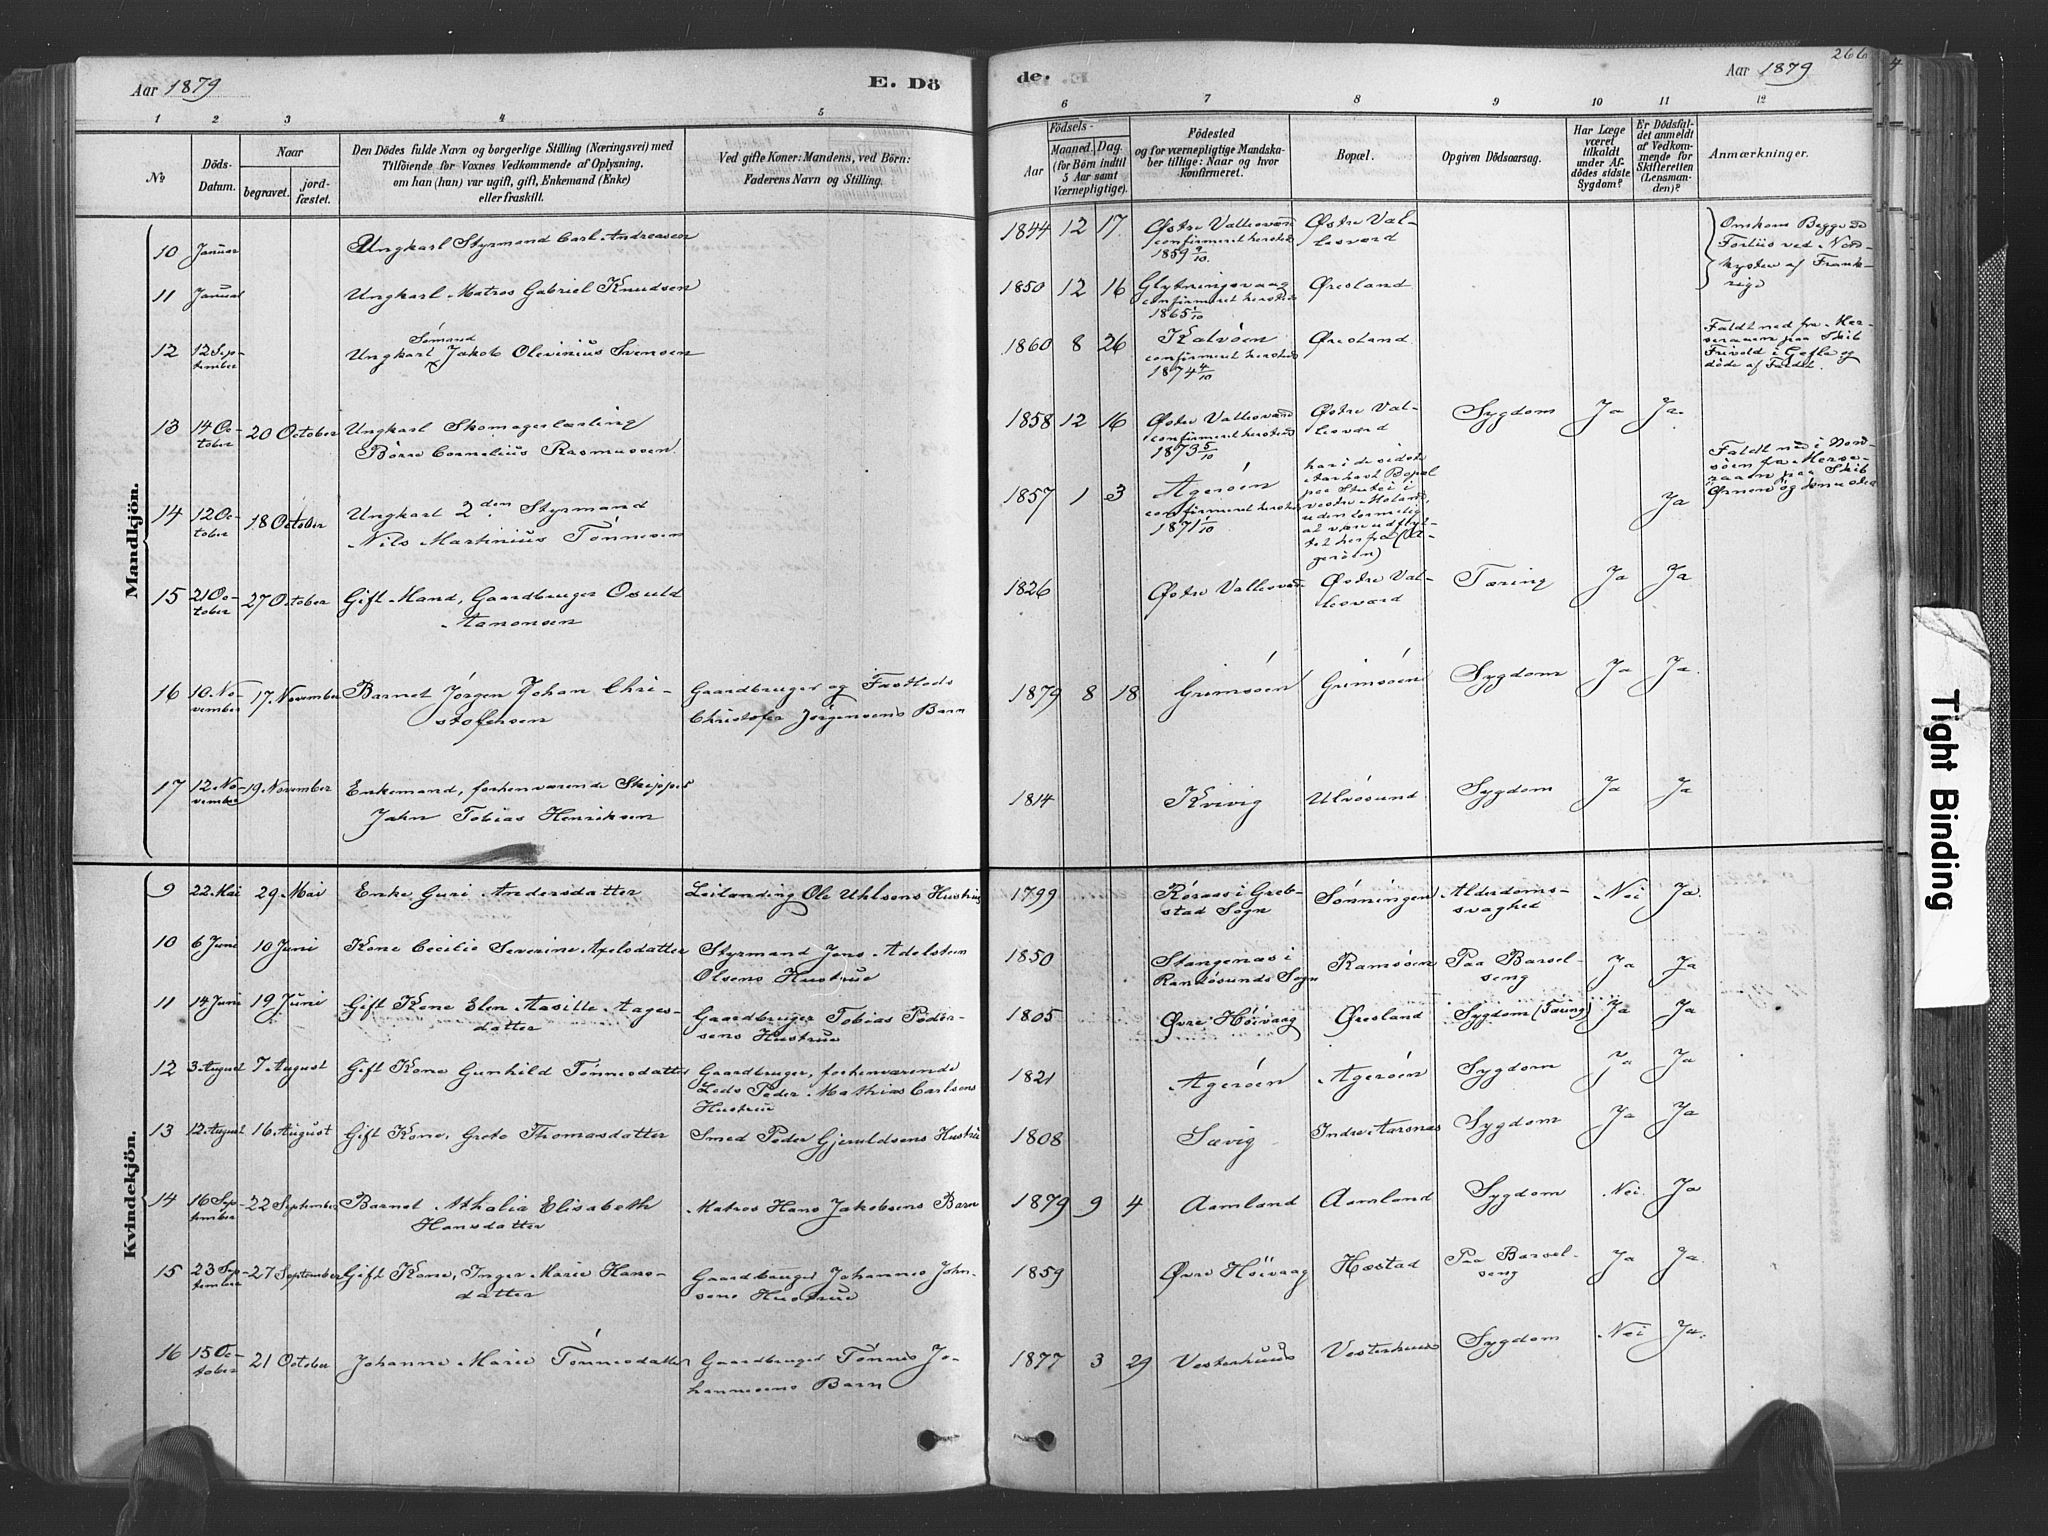 Aar 1879
E. Dö
de.
Aar 1879
266
1 2 3 4 5 6 7 8 9 10 11 12
No
Döds-
Datum.
Naar
begravet.
jord-
fæstet.
Den Dödes fulde Navn og borgerlige Stilling (Næringsvei) med
Tilföiende for Voxnes Vedkommende af Oplysning,
om han (hun) var ugift, gift, Enkemand (Enke)
eller fraskilt.
Ved gifte Koner: Mandens, ved Börn:
Faderens Navn og Stilling.
Födsels-
Aar
Maaned. Dag.
(for Börn indtil
5 Aar samt
Værnepligtige).
Födested
og for værnepligtige Mandska-
ber tillige: Naar og hvor
Konfirmeret.
Bopæl.
Opgiven Dödsaarsag.
Har Læge
været
tilkaldt
under Af-
dödes sidste
Sygdom?
Er Dödsfal-
det anmeldt
af Vedkom-
mende for
Skifteretten
(Lensman-
den)?
Anmærkninger.
Mandkjön.
10 Januar Ungkarl Styrmand Carl Andreasen 1844 12 17 Østre Vallesværd
confirmeret hersteds
1859 9/10. Østre Val-
lesværd Omkom Begge ved
Forliis ved Nord-
kysten af Frank-
rige
11 Januar Ungkarl Matros Gabriel Knudsen 1850 12 16 Glytningsvaag
confirmeret hersteds
1865 1/10 Øresland
12 12 Sep-
tember Sömand
Ungkarl Jakob Olevinius Svensen 1860 8 26 Kalvöen
confirmeret hersteds
1874 4/10 Øresland Faldt ned fra Mer-
seraaen paa Skib
Frivold i Gefle og
döde af Faldet.
13 14 Oc-
tober 20 October Ungkarl Skomagerlærling
Börre Cornelius Rasmussen 1858 12 16 Østre Vallesværd
confirmeret hersteds
1873 5/10 Østre Val-
lesværd Sygdom Ja Ja.
14 12 Oc-
tober 18 October Ungkarl 2den Styrmand
Nils Martinius Tönnesen 1857 1 3 Ageröen
confirmeret hersteds
1871 1/10 har i de sidste
Aar havt Bopæl
paa
vestre Moland,
uden formelig
at være udflyt-
tet herfra (A-
geröen) Ja Faldt ned i Nord-
söen fra Merse-
raaen paa Skib
Ørnen og
15 21 Oc-
tober 27 October Gift Mand, Gaardbruger Osuld
Aanonsen 1826 Østre Vallesværd Østre Val-
lesværd Tæring Ja Ja
16 10 No-
vember 17 November Barnet Jörgen Johan Chri-
stofersen Gaardbruger og Fastlods
Christofer Jörgensens Barn 1879 8 18 Grimsöen Grimsöen Sygdom Ja Ja.
17 12 No-
vember 19 November Enkemand, forhenværende Skipper
Jahn Tobias Henriksen 1814 Krivig Ulvösund Sygdom Ja Ja
Kvindekjön.
9 22 Mai 29 Mai Enke Guri Andersdatter Leilænding Ole Uhlsens Hustrue 1799 Röraas i Greb-
stad Sogn Sönningen Alderdoms-
svaghed Nei Ja.
10 6 Juni 10 Juni Kone Cecilie Severine Axelsdatter Styrmand Jens Adelsteen
Olsens Hustrue 1850 Stangenæs i
Randösunds Sogn Ramsöen Paa Barsel-
seng Ja Ja
11 14 Juni 19 Juni Gift Kone Elen Aasille Aages-
datter Gaardbruger Tobias Peder-
sens Hustrue 1805 Øvre Höivaag Øresland Sygdom (Tæring) Ja Ja
12 3 August 7 August Gift Kone Gunhild Tönnesdatter Gaardbruger, forhenværende
Lods Peder Mathias Carlsens
Hustrue 1821 Ageröen Ageröen Sygdom Ja Ja
13 12 August 16 August Gift Kone, Grete Thomasdatter Smed Peder Gjeruldsens Hustrue 1808 Sævig Indre Aarsnæs Sygdom Ja Ja
14 16 Sep-
tember 22 September Barnet Athalia Elisabeth
Hansdatter Matros Hans Jakobsens Barn 1879 9 4 Aamland Aamland Sygdom Nei Ja
15 23 Sep-
tember 27 September Gift Kone, Inger Marie Hans-
datter Gaardbruger Johannes John-
sens Hustrue 1859 Øvre Höivaag Hæstad Paa Barsel-
seng Ja Ja.
16 15 Oc-
tober 21 October Johanne Marie Tönnesdatter Gaardbruger Tönnes Jo-
hannesens Barn 1877 3 29 Vesterhuus Vesterhuus Sygdom Nei Ja.
Tight Binding